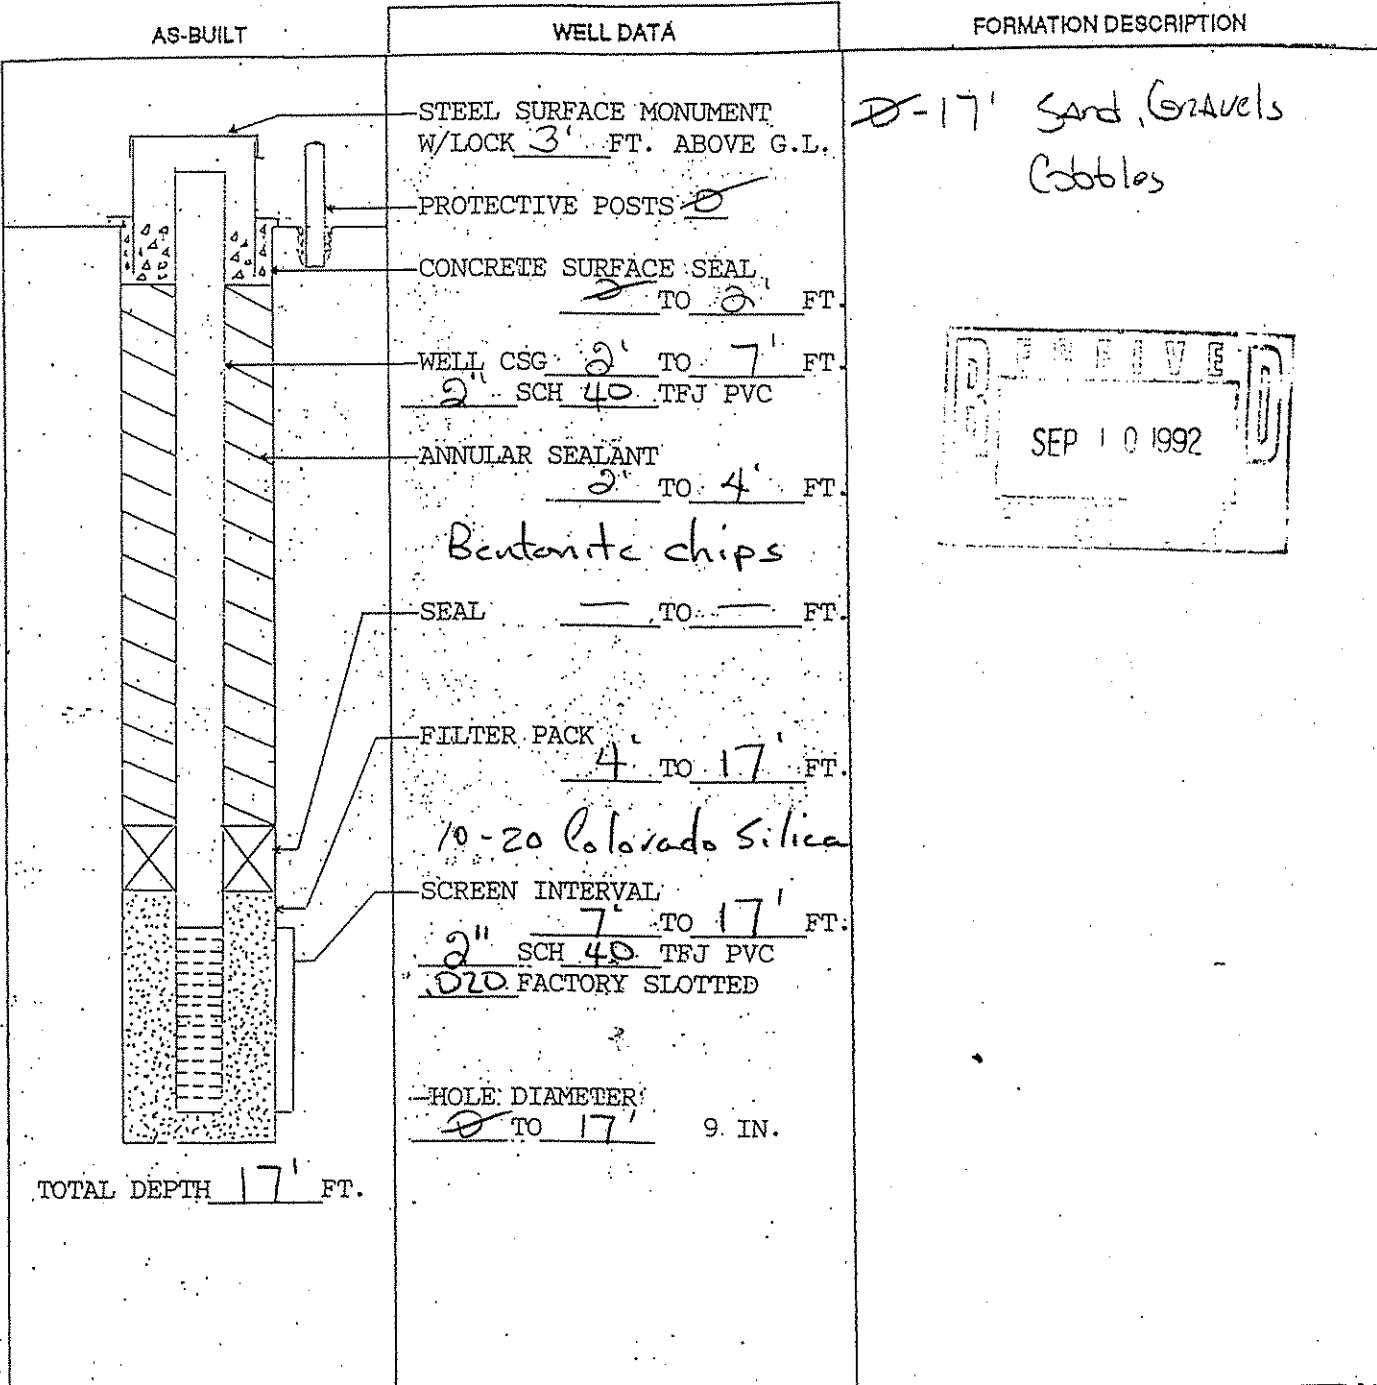 AS-BUILT
WELL DATA
FORMATION DESCRIPTION
STEEL SURFACE MONUMENT
W/LOCK 3' FT. ABOVE G.L.
PROTECTIVE POSTS 0
CONCRETE SURFACE SEAL
0 TO 2' FT.
WELL CSG 2' TO 7' FT.
2" SCH 40 TFJ PVC
ANNULAR SEALANT
2' TO 4' FT.
Bentonite chips
SEAL — TO — FT.
FILTER PACK
4' TO 17' FT.
10-20 Colorado Silica
SCREEN INTERVAL
7' TO 17' FT.
2" SCH 40 TFJ PVC
.020 FACTORY SLOTTED
HOLE DIAMETER
0 TO 17' 9 IN.
TOTAL DEPTH 17' FT.
0-17' Sand, Gravels
Cobbles
SEP 10 1992